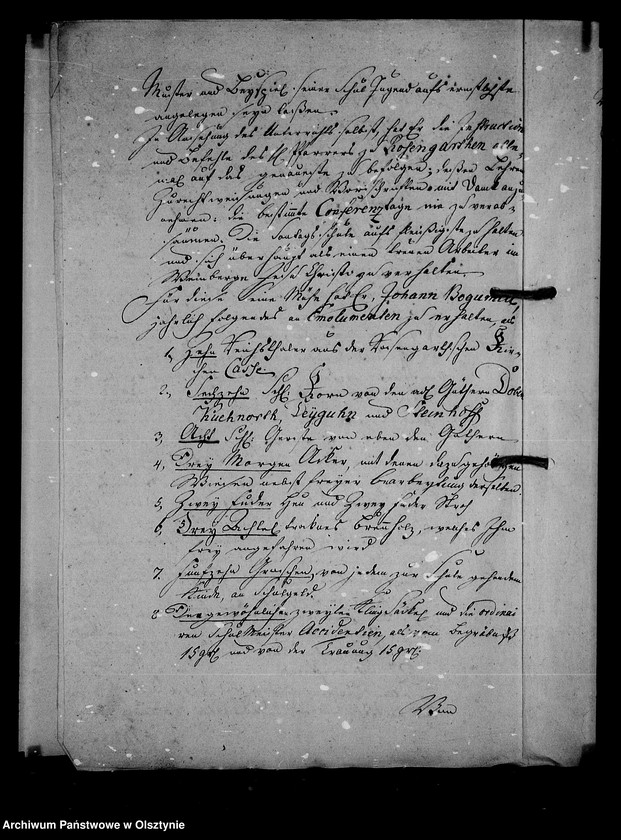 Muster und Beyspiel seiner Schul Jugend aufs ernstlichste
angelegen seyn laßen.
In Ansehung des Unterrichts selbst, hat Er die Instruction
und Befehle des H. Pfarrers zu Rosengarthen alle-
mal auf das genaueste zu befolgen; deßen Lehren
Zurechtweisungen und Vorschriften mit Dank anzu-
nehmen; die bestimmte Conferenztage nie zu verab-
säumen. Die Sontagsschule aufs fleißigste zu halten
und sich überhaupt als einen treuen Arbeiter im
Weinberge Christi zu verhalten.
Für diese seine Mühe hat Er, Johann Bogumil,
jährlich folgendes an Emolumenten zu erhalten, als
1, Zehn Reichsthaler aus der Rosengarthschen Kir-
chen Casse
2., Sechzehn Schl. Korn von den adl. Güthern
und Steinhoff
3, Acht Schl. Gerste von eben den Güthern
4, Drey Morgen Acker, mit denen dazugehörigen
Wiesen nebst freyer Bearbeytung derselben.
5, Zwey Fuder Heu und Zwey Fuder Stroh
6, Drey Achtel Brennholz, welches Ihm
frey angefahren wird
7. Funfzehn Groschen, von jedem zur Schule gehendem
Kinde, an Schulgeld.
8 Den gewöhnlichen zweyten Klingsäckel und die ordinai
ren Schul Meister Accidentien, als vom Begräbniß
15 grl. und von der Trauung 15 grl.
Archiwum Państwowe w Olsztynie